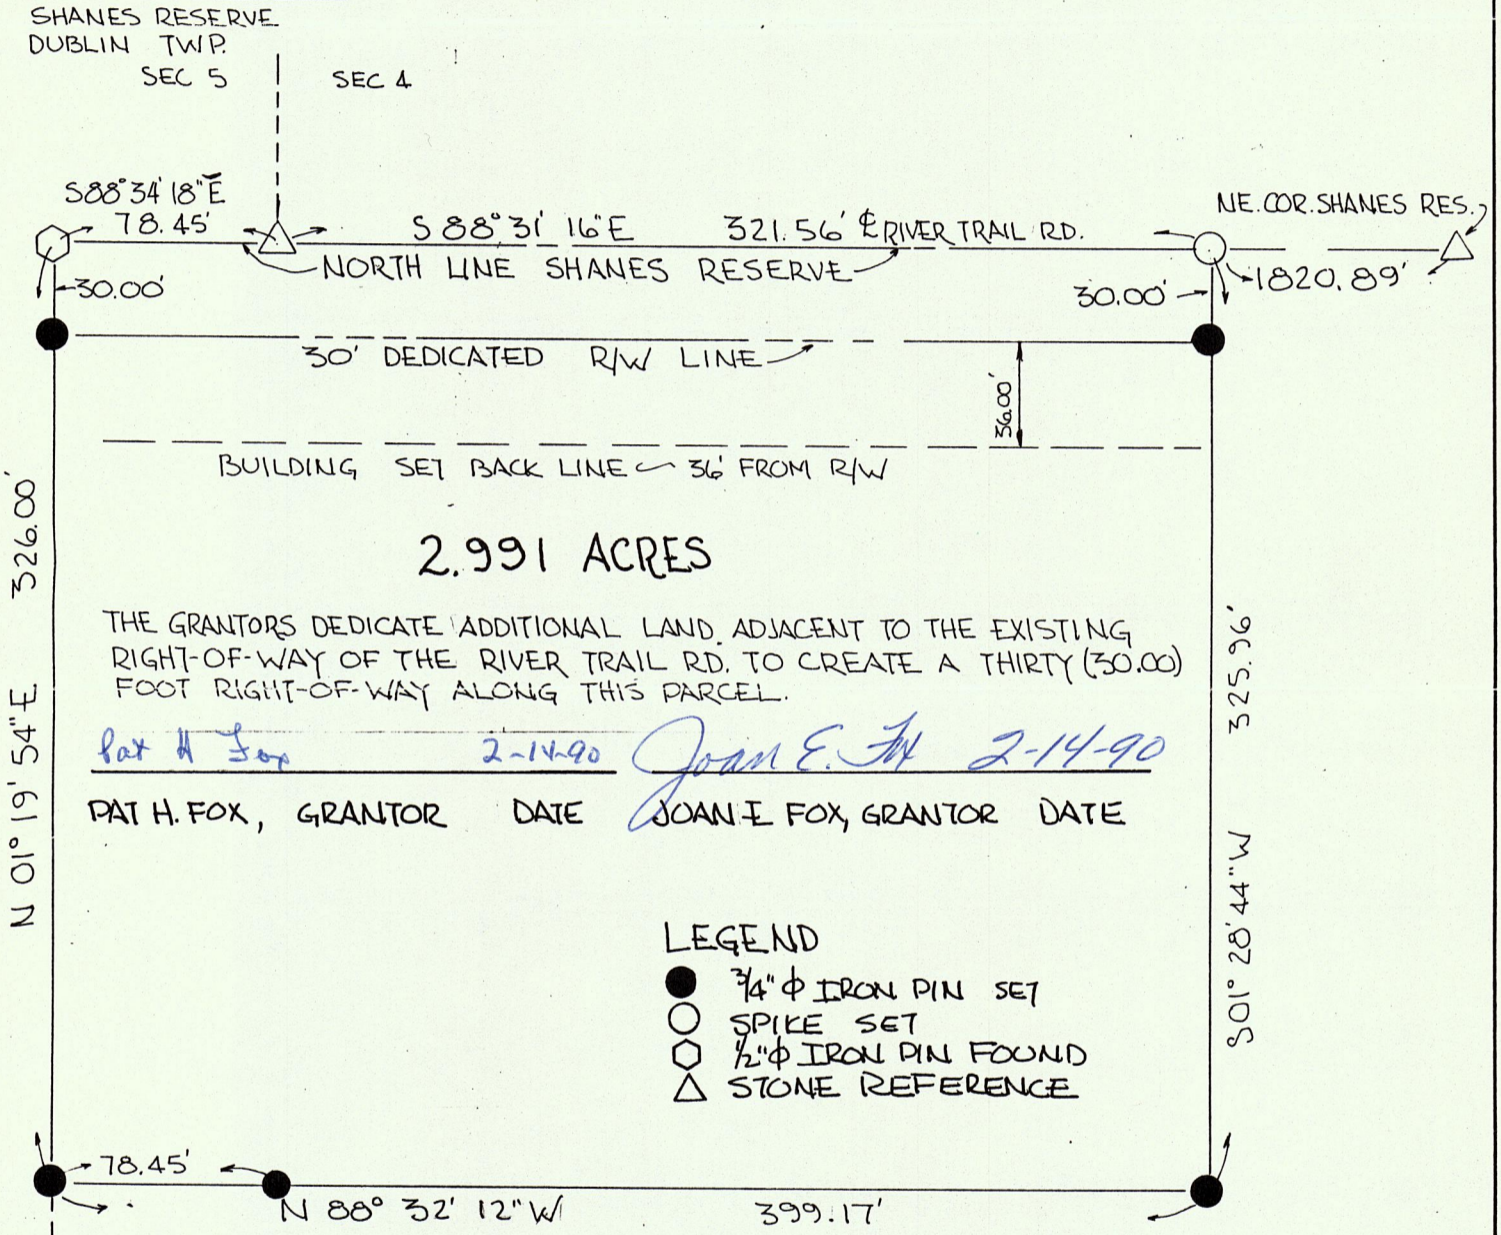 SHANES RESERVE
DUBLIN TWP.
SEC 5
SEC 4
S88°34'18"E
78.45'
S 88°31' 16"E
321.56' ℄ RIVER TRAIL RD.
NE. COR. SHANES RES.
NORTH LINE SHANES RESERVE
30.00'
30.00'
1820.89'
30' DEDICATED R/W LINE
36.00'
BUILDING SET BACK LINE 36' FROM R/W
2.991 ACRES
THE GRANTORS DEDICATE ADDITIONAL LAND. ADJACENT TO THE EXISTING
RIGHT-OF-WAY OF THE RIVER TRAIL RD. TO CREATE A THIRTY (30.00)
FOOT RIGHT-OF-WAY ALONG THIS PARCEL.
Pat H Fox 2-14-90
Joan E. Fox 2-14-90
PAT H. FOX, GRANTOR DATE
JOAN E FOX, GRANTOR DATE
N 01° 19' 54"E 326.00'
S01° 28' 44"W 325.96'
LEGEND
3/4"ϕ IRON PIN SET
SPIKE SET
1/2"ϕ IRON PIN FOUND
STONE REFERENCE
78.45'
N 88° 32' 12" W 399.17'